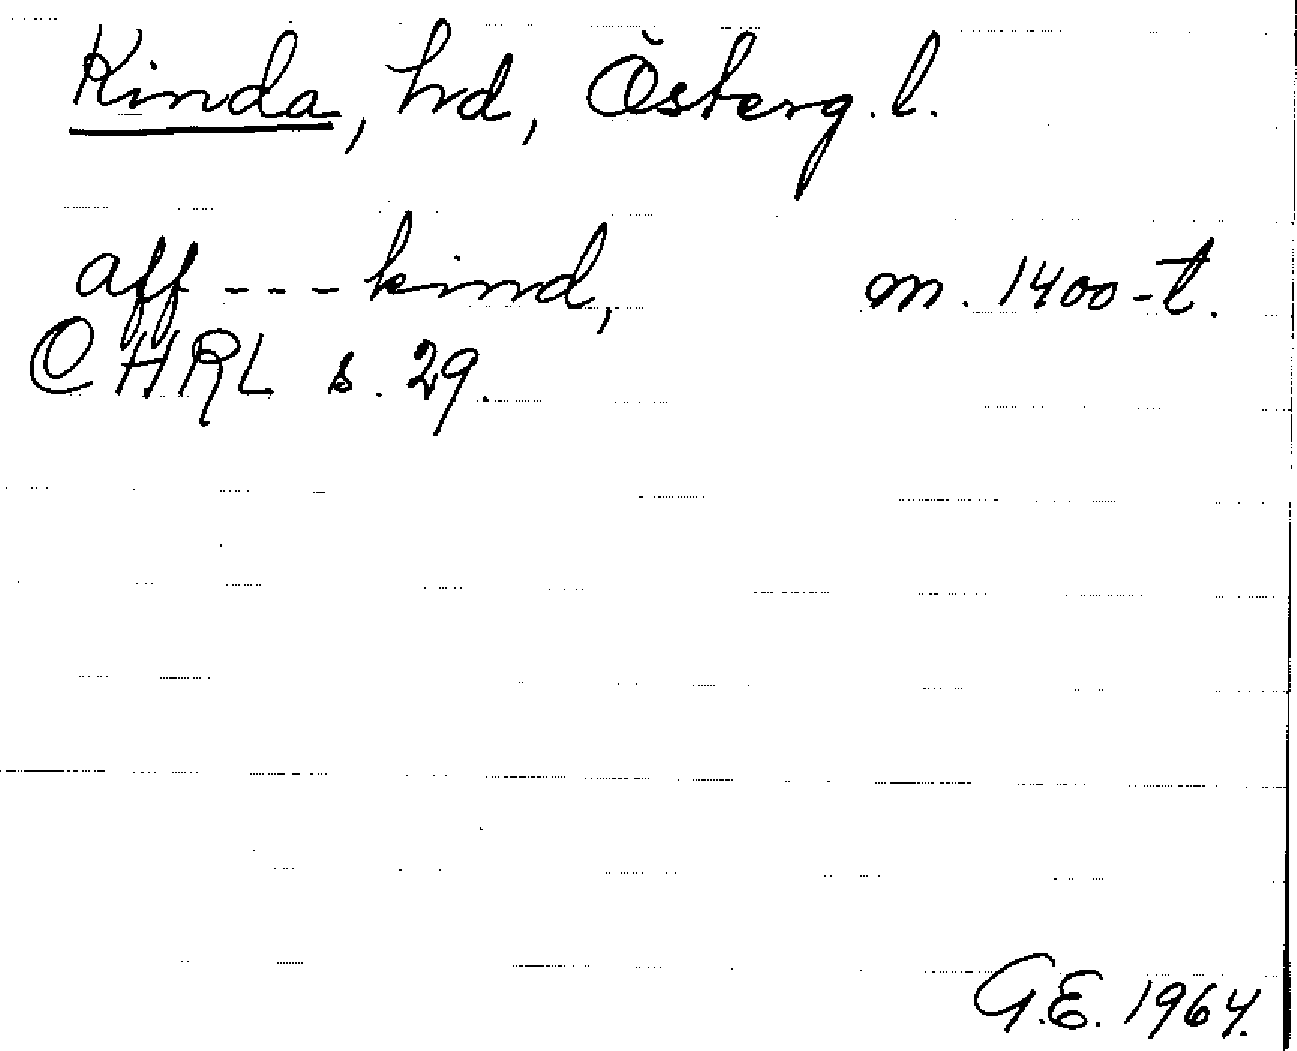 Kinda, hd, Österg. l.
aff --- kind, m. 1400-t.
CHRL s. 29.
G.E. 1964.